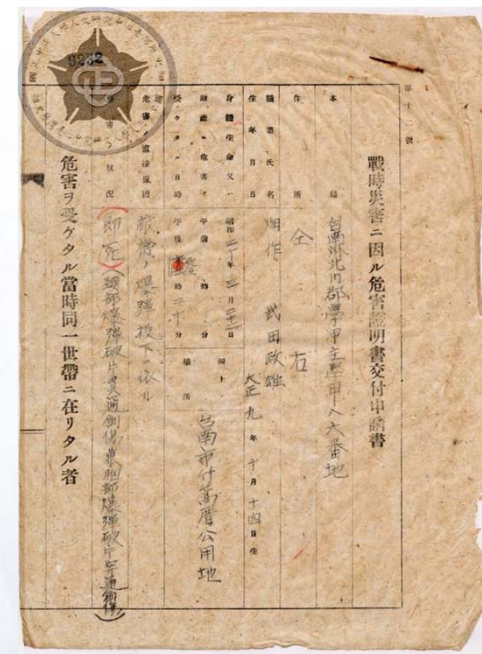 第十二號
戰時災害ニ因ル危害證明書交付申請書
本 籍
台南州北門郡學甲庄學甲八六番地
住 所
仝 右
職業 氏名
田作 武田政雄
生年月日
大正九年十月十四日生
身體生命又ハ
財產ニ危害ヲ
受ケタル日時
昭和二十年三月二十二日
午前 時 分
午後 時二十分
同上
場所
台南市竹篙厝公用地
危害ノ直接原因
敵機ノ爆彈投下ニ依ル
狀況
(即死)(頭部爆彈破片貫通創傷兼胸部爆彈破片貫通創傷)
危害ヲ受ケタル當時同一世帶ニ在リタル者
0232